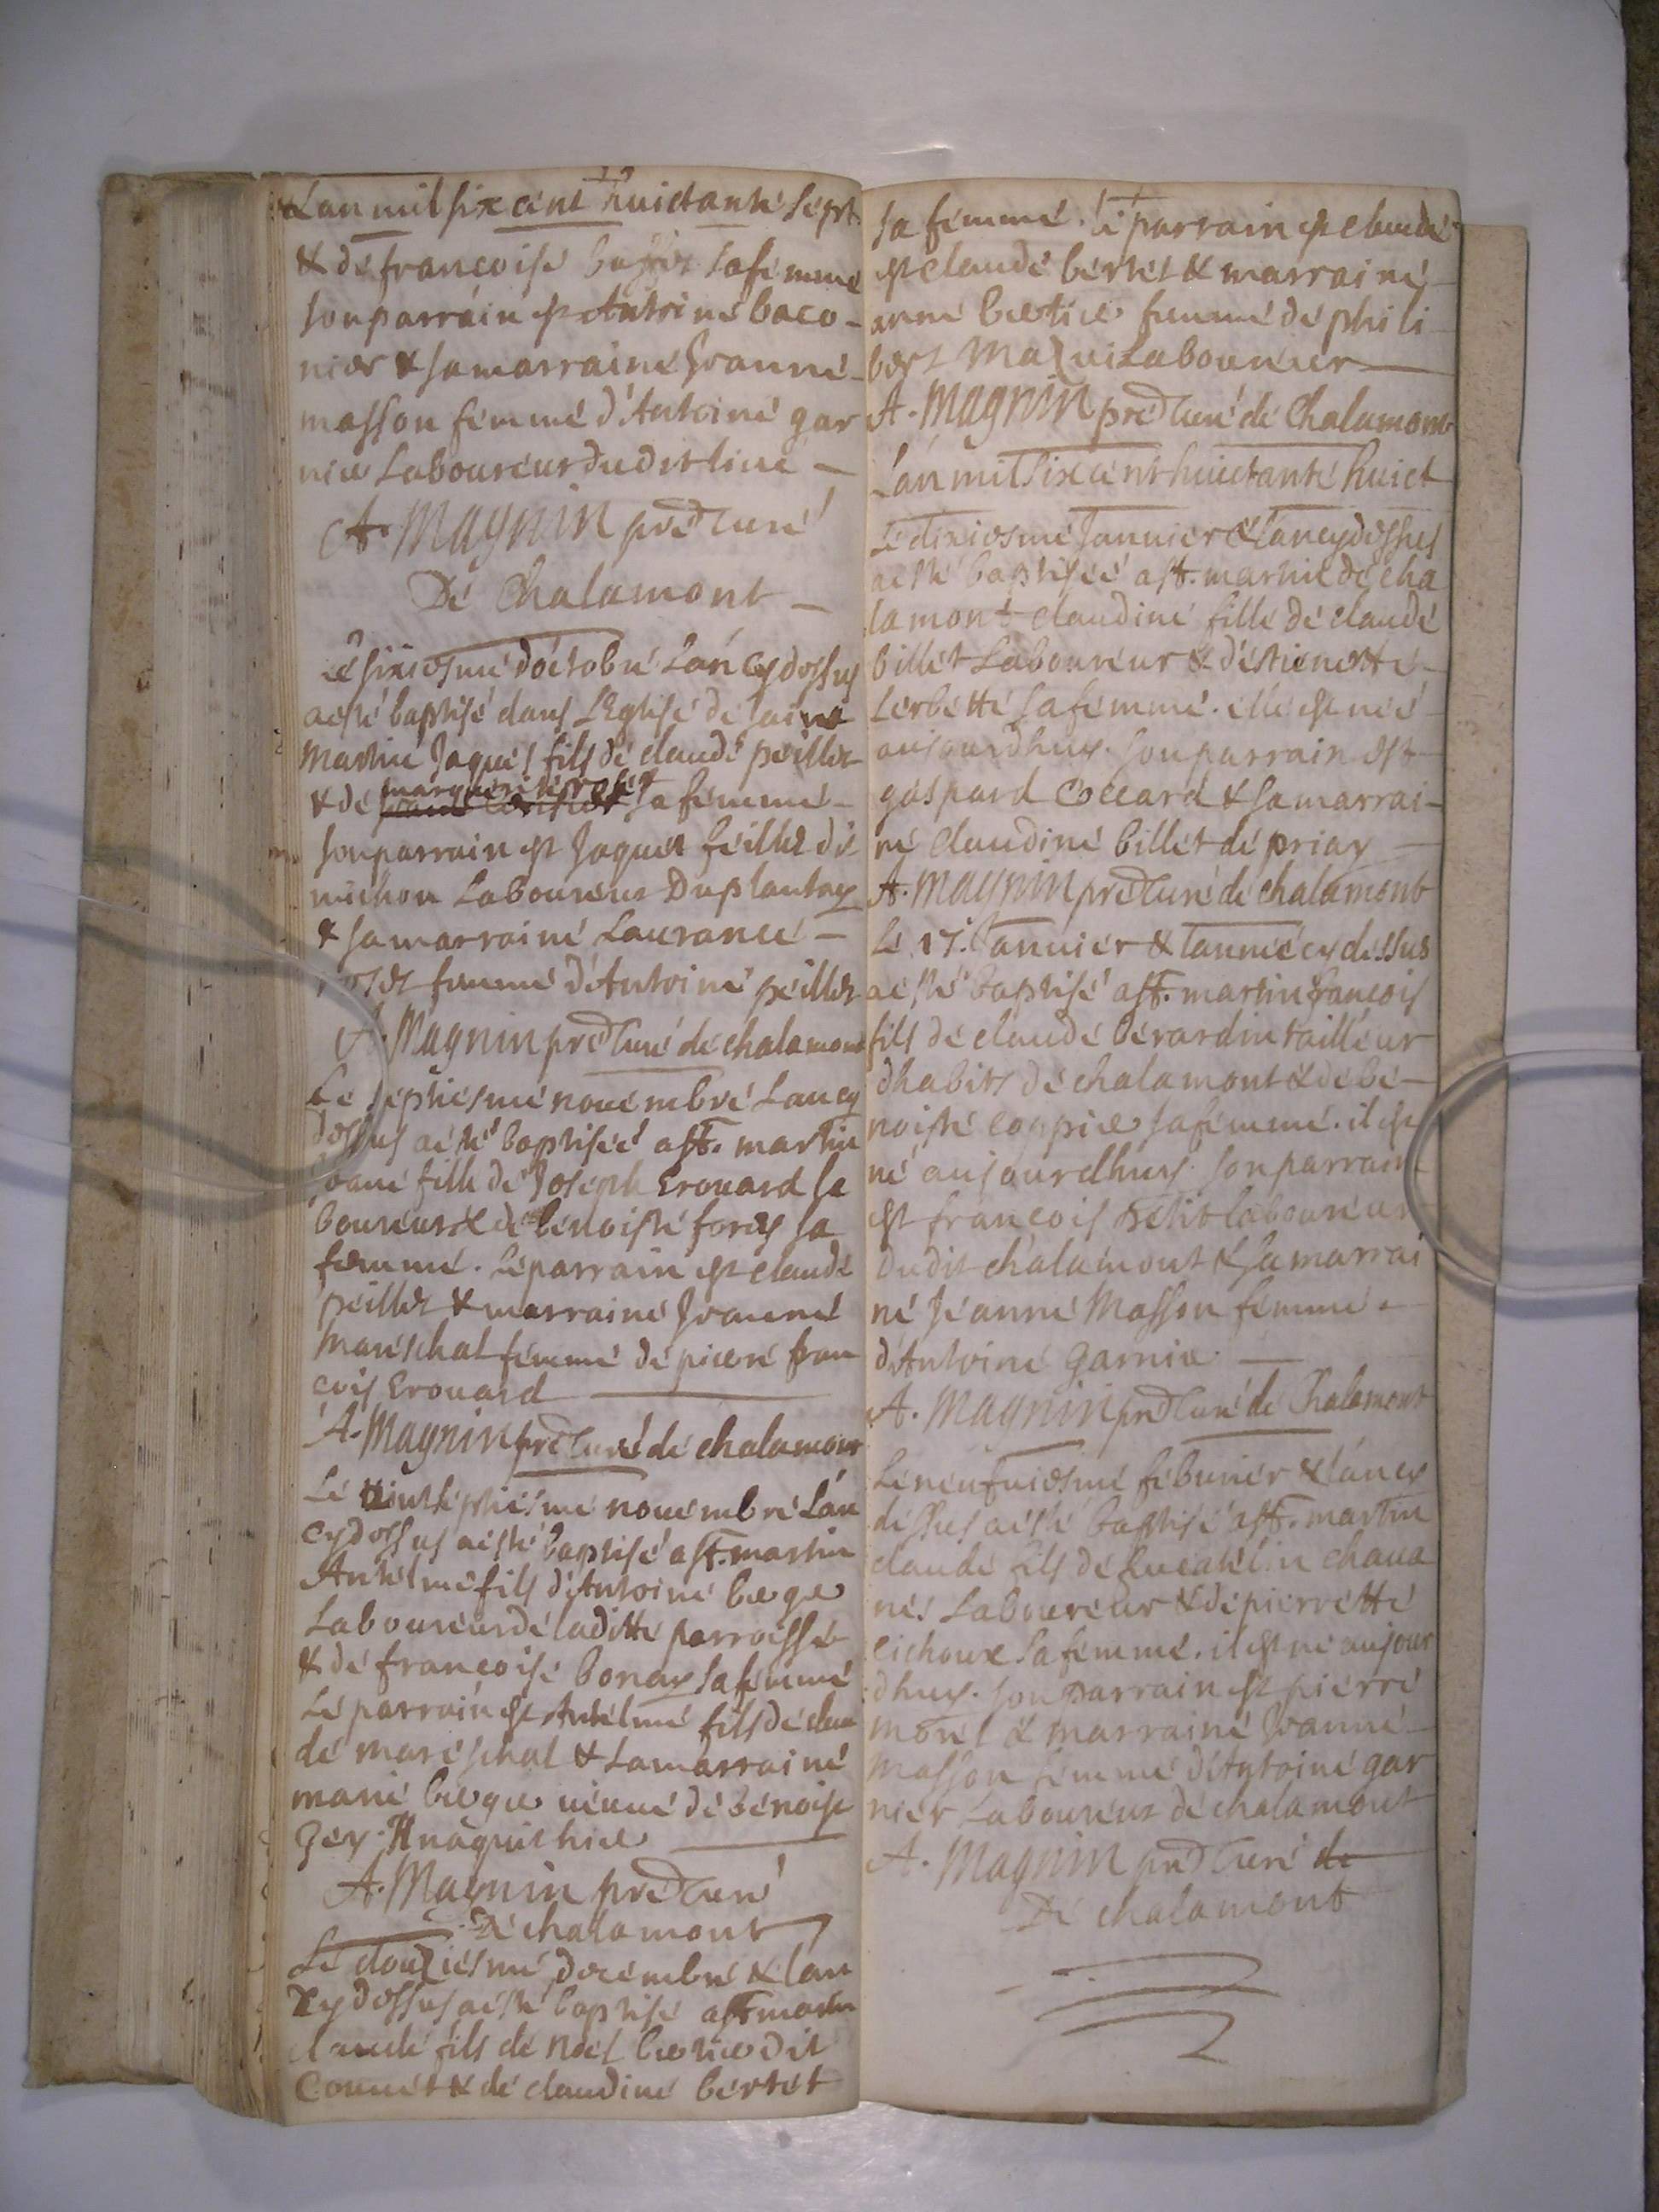 Lan mil six cent huictante sept
& de francoise sa femme
son parrain est Antoine baco-
nier & sa marraine Jeanne
masson femme d'Antoine gar
nier Laboureur dudit lieu
A. Magnin prebt curé
De Chalamont
Le sixiesme d'octobre Lan cy dessus
a esté baptisé dans L'Eglise de saint
Martin Jaques fils de claude peillet
& de marguerite rosset sa femme
son parrain est Jaques peillet dit
michon Laboureur Duplantay
& sa marraine Laurance
roset femme d'Antoine peillet
A. Magnin prebt curé de chalamont
Le septiesme nouembre Lan cy
dessus a esté baptisée a st. martin
Jeane fille de Joseph Erouard la
boureur & de benoiste forey sa
femme. Le parrain est claude
peillet & marraine Jeanne
mareschal femme de pierre fran
cois Erouard
A. Magnin prebt curé de chalamont
Le vint septiesme nouembre Lan
cy dessus a esté baptisé a st. martin
Antelme fils d'Antoine berger
Laboureur de laditte parroisse
& de francoise bonay sa femme
Le parrain est Antelme fils de clau
de mareschal & La marraine
marie berger veuue de benoist
A. Magnin prebt curé
De chalamont
Le douziesme decembre & lan
cy dessus a esté baptisé a st martin
claude fils de Noel bertier dit
Connet & de claudine bertet
sa femme. le parrain est claude
est claude bertet & marraine
anne bertier femme de phili
bert Mazui Laboureur
A. Magnin prebt curé de Chalamont
L'an mil six cent huictante huict
Le dixiesme Januier & lan cy dessus
a esté baptisée a st. martin de cha
lamont claudine fille de claude
billet Laboureur & d'estienette
Lerbette sa femme. elle est née
aujourdhuy. son parrain est
gaspard Coccard & sa marrai-
ne claudine billet de priay
A. Magnin prebt curé de chalamont
Le 17. Januier & l'année cy dessus
a esté baptisé a st. martin francois
fils de claude berardin tailleur
dhabits de chalamont & de be-
noiste coppier sa femme. il est
né aujourdhuy. son parrain
est francois petit laboureur
dudit chalamont & sa marrai
ne Jeanne Masson femme
d'Antoine Garnier
A. Magnin prebt curé de Chalamont
Le neufuiesme feburier & lan cy
dessus a esté baptisé a st. martin
claude fils de chaua
nes Laboureur & de pierrette
cichoux sa femme. il est né aujour
dhuy. son parrain est pierre
morel & marraine Jeanne
masson femme d'Antoine gar
nier Laboureur de chalamont
A. Magnin prebt curé de
De chalamont